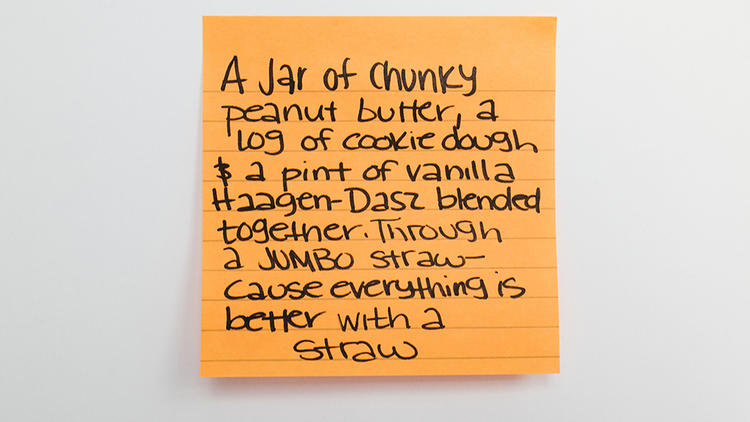 A Jar of Chunky
peanut butter, a
log of cookie dough
& a pint of vanilla
Haagen-Dasz blended
together. Through
a JUMBO straw-
cause everything is
better with a
straw